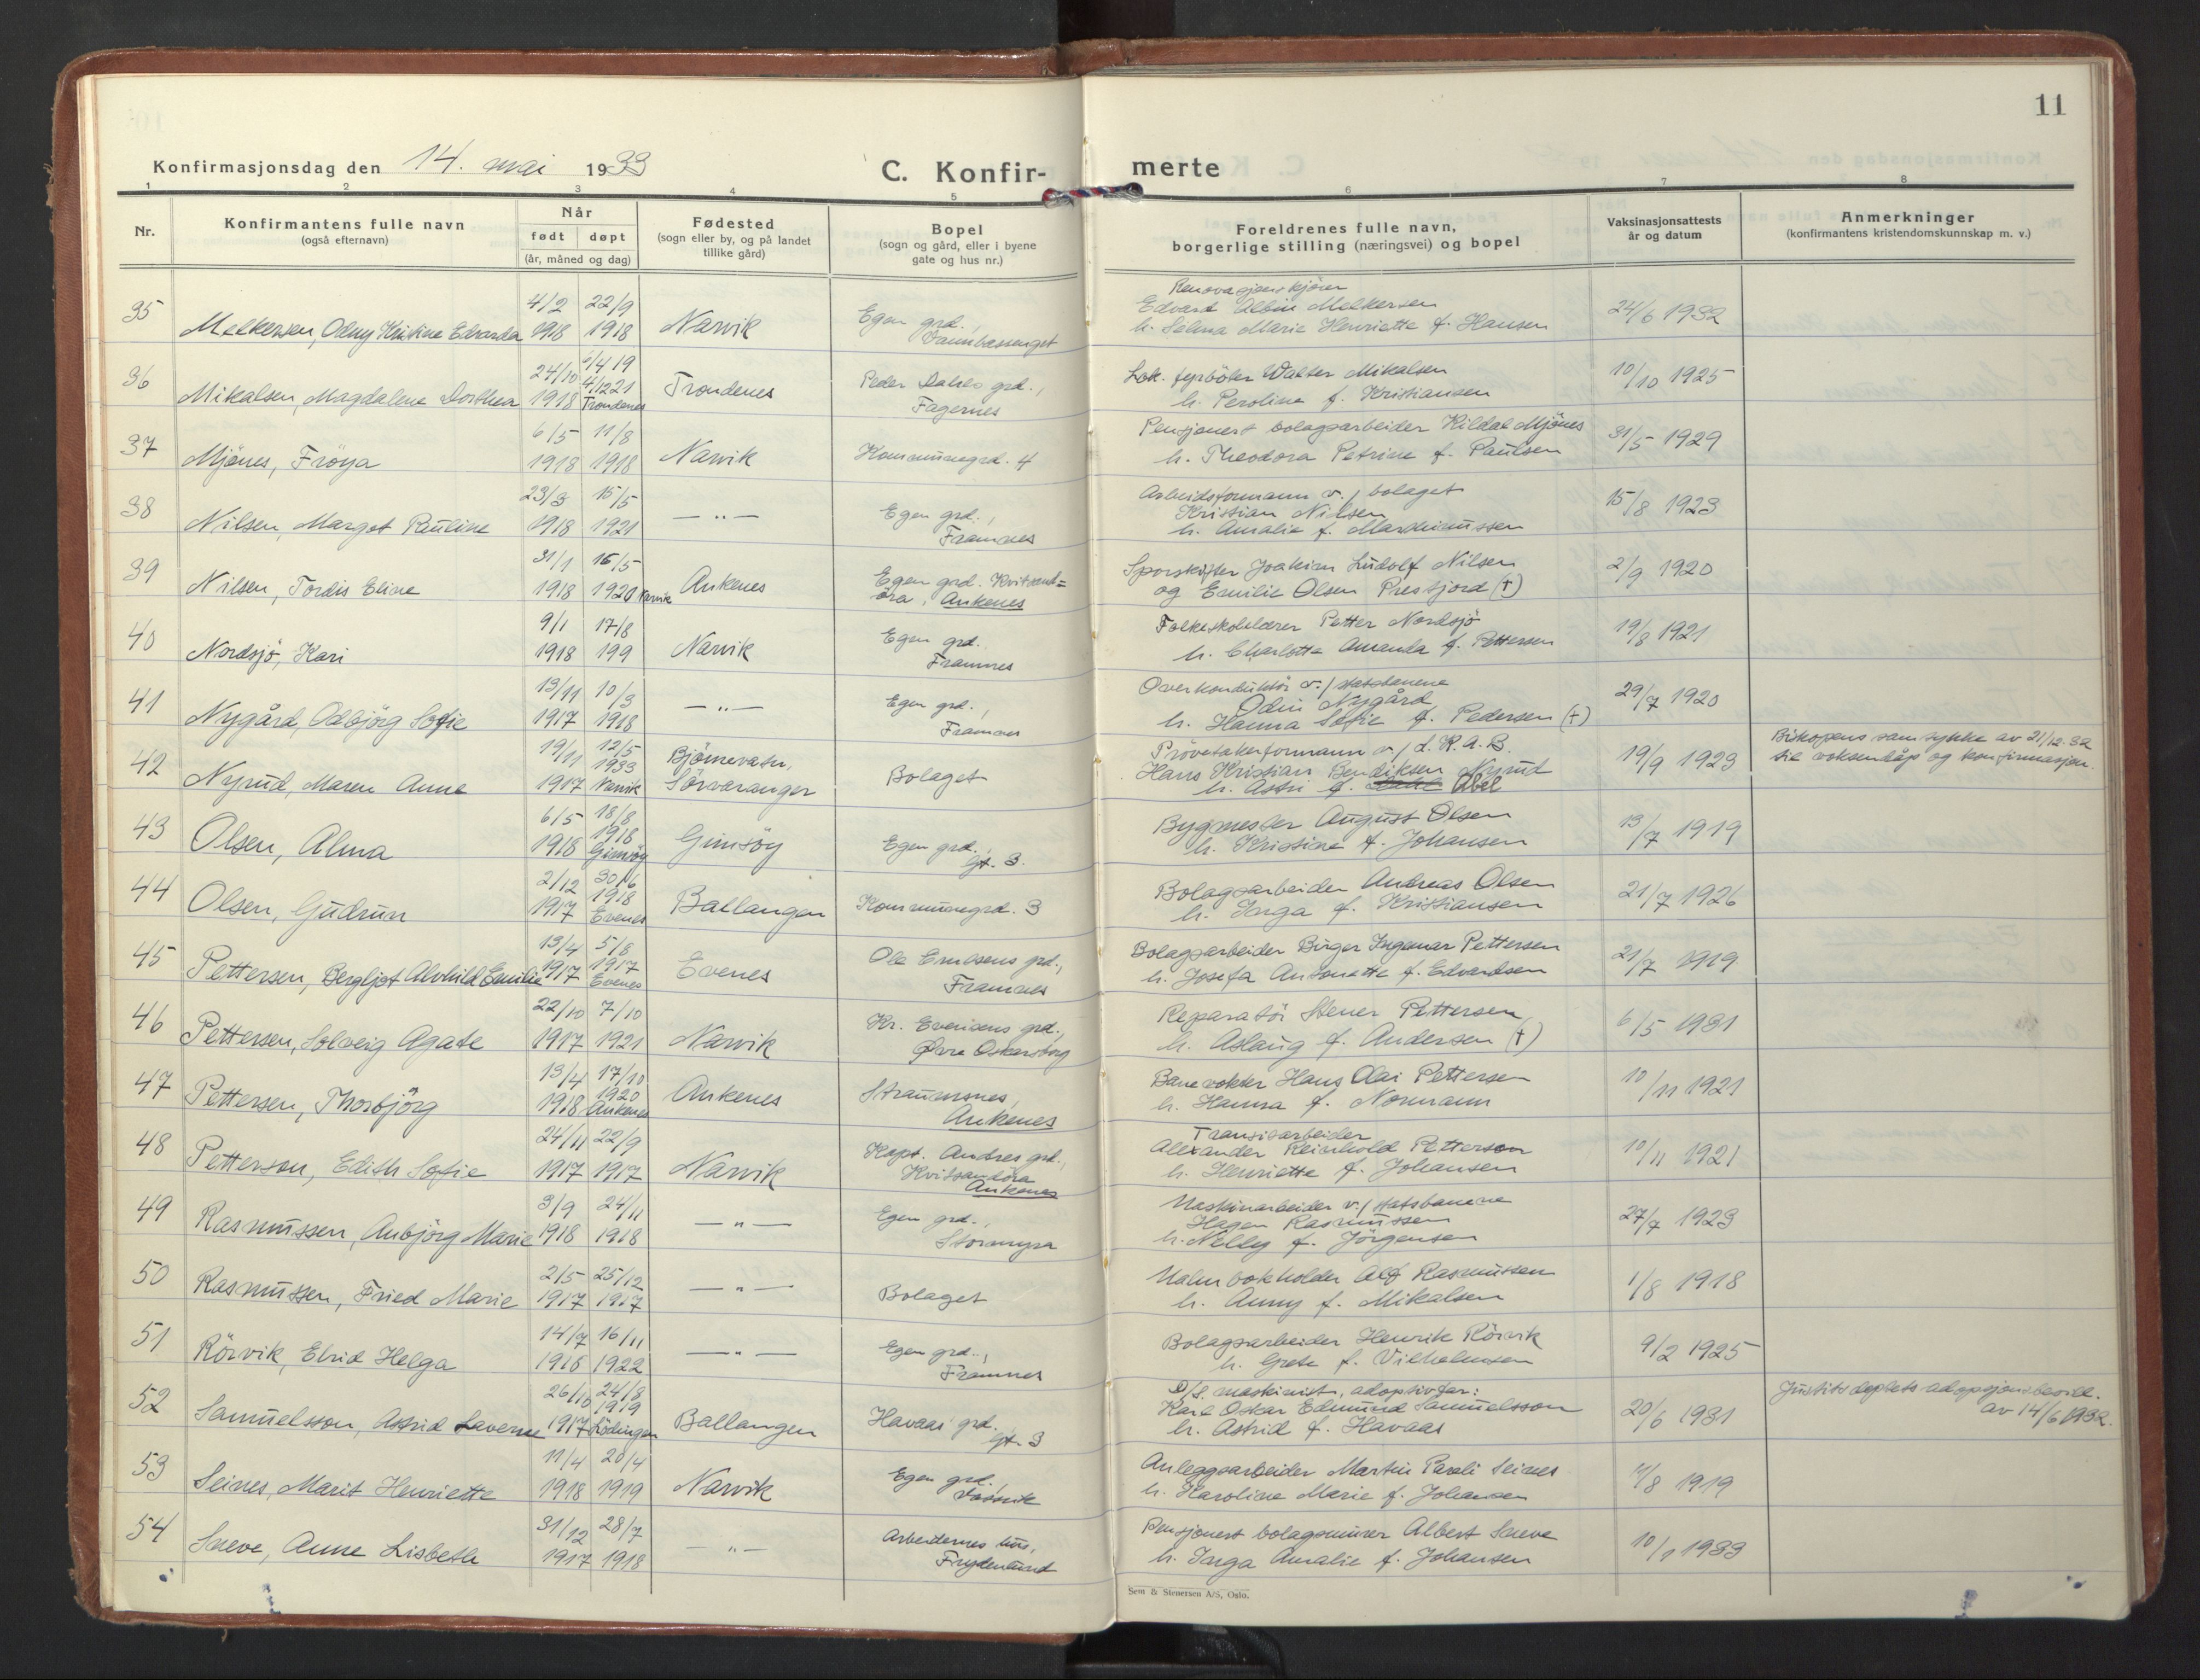 11
Konfirmasjonsdag den 14. mai 1933
C. Konfir-
merte
1 2 3 4 5 6 7 8
Nr.
Konfirmantens fulle navn
(også efternavn)
Når
født døpt
(år, måned og dag)
Fødested
(sogn eller by, og på landet
tillike gård)
Bopel
(sogn og gård, eller i byene
gate og hus nr.)
Foreldrenes fulle navn,
borgerlige stilling (næringsvei) og bopel
Vaksinasjonsattests
år og datum
Anmerkninger
(konfirmantens kristendomskunnskap m. v.)
35 4/2 22/9 Egen grd., Renovasjonskjører
Melkersen, Odny Kristine Edvarda 1918 1918 Narvik Edvard Albin Melkersen 24/6 1932
h. Selma Marie Henriette f. Hansen
36 24/10 6/4 19 Peder Dahls grd., Lok. fyrböter Walter Mikalsen 10/10 1925
4/12 21
Mikalsen, Magdalene Dorthea 1918 Trondenes Trondenes Fagernes h. Peroline f. Kristiansen
37 6/5 11/8 Pensjonert bolagsarbeider Kildal Mjönes 31/5 1929
Mjönes, Fröya 1918 1918 Narvik Kommunegrd. 4 h. Theodora Petrine f. Paulsen
38 23/3 15/5 Egen grd., Arbeidsformann v./ bolaget 15/8 1923
Kristian Nilsen
Nilsen, Margot Pauline 1918 1921 — " — Framnes h. Amalie f. Mardinussen
39 31/1 16/5 Ankenes Egen grd. Kvitsand= Sporskifter Joakim Ludolf Nilsen 2/9 1920
Nilsen, Tordis Eline 1918 1920 Narvik öra, Ankenes og Emilie Olsen Prestjord (†)
40 9/1 17/8 Egen grd. Folkeskolelærer Petter Nordsjö 19/8 1921
Nordsjö, Kari 1918 199 Narvik Framnes h. Charlotte Amanda f. Pettersen
41 13/11 10/3 — " — Egen grd., Overkonduktör v./ statsbanene 29/7 1920
Odin Nygård
Nygård, Odbjörg Sofie 1917 1918 Framnes h. Hanna Sofie f. Pedersen (†)
42 19/11 12/5 Bjørnevatn, Prövetakerformann v./ L.K.A.B. 19/9 1923 Biskopens samtykke av 21/12-32
1933 til voksendåp og konfirmasjon.
Nyrud, Maren Anne 1917 Narvik Sörvaranger Bolaget Hans Kristian Bendiksen Nyrud
h. Astri f. Abel
43 6/5 18/8 Egen grd., Bygmester August Olsen 13/7 1919
1918
Olsen, Alma 1918 Gimsöy Gimsöy Gt. 3. h. Kristine f. Johansen
44 2/12 30/6 Bolagsarbeider Andreas Olsen 21/7 1926
1918
Olsen, Gudrun 1917 Evenes Ballangen Kommunegrd. 3 h. Inga f. Kristiansen
45 13/4 5/8 Framnes Bolagsarbeider Birger Ingemar Pettersen 21/7 1919
1917
Pettersen, Bergljot Alvhild Emilie 1917 Evenes Evenes h. Josefa Antonette f. Edvardsen
46 22/10 7/10 Kr. Everisens grd., Reparatör Stener Pettersen 6/5 1931
Pettersen, Solveig Agate 1917 1921 Narvik Øvre Oskarsborg h. Aslaug f. Andersen (†)
47 13/4 17/10 Straumsnes, Banevokter Hans Olai Pettersen 10/11 1921
1920
Pettersen, Thorbjörg 1918 Ankenes Ankenes Ankenes h. Hanna f. Normann
48 24/11 22/9 Kapt. Andres grd., Transitarbeider
Petterson, Edith Sofie 1917 1917 Narvik Kvitsandöra Alexander Reinhold Petterson 10/11 1921
Ankenes h. Henriette f. Johansen
49 3/9 24/11 — " — Egen grd., Maskinarbeider v./ statsbanene 27/7 1923
Hagen Rasmussen
Rasmussen, Aubjörg Marie 1918 1918 Stormyra h. Nelly f. Jörgensen
50 2/5 25/12 — " — Malmbokholder Alf Rasmussen 1/8 1918
Rasmussen, Fried Marie 1917 1917 Bolaget h. Anny f. Mikalsen
51 14/7 16/11 — " — Egen grd., Bolagsarbeider Henrik Rörvik 9/2 1925
Rörvik, Elvid Helga 1918 1922 Framnes h. Grete f. Vilhelmsen
52 26/10 24/8 D/s. maskinist, adoptivfar: Justitsdeptets adopsjonsbevill.
1919 av 14/6 1932.
Samuelsson, Astrid Laverne 1917 Lödingen Ballangen Havaas grd. Karl Oskar Edmund Samuelsson 20/6 1931
Gt. 3 h. Astrid f. Havaas
53 11/4 20/4 Egen grd., Anleggsarbeider Martin Parali Seines 11/8 1919
Seines, Marit Henriette 1918 1919 Narvik h. Karoline Marie f. Johansen
54 31/12 28/7 Arbeidernes hus, Pensjonert bolagsmurer Albert Sneve 10/1 1933
Sneve, Anne Lisbeth 1917 1918 — " — Frydenlund h. Inga Amalie f. Johansen
Sem & Stenersen A/S, Oslo.